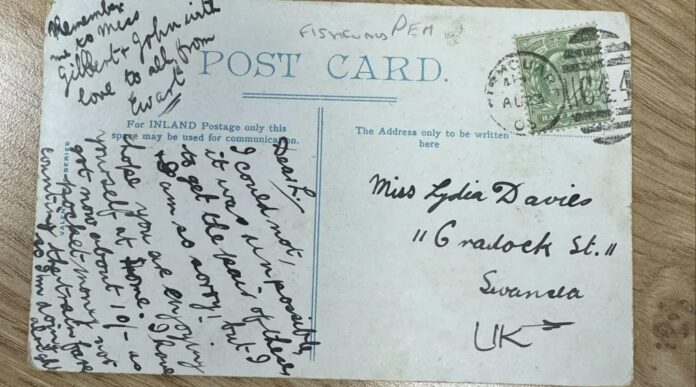 Remember
me to Miss
Gilbert & John with
love to all from
Ewart
FISHGUARD PEM
POST CARD.
For INLAND Postage only this
space may be used for communication.
The Address only to be written
here
Dear L.
I could not,
it was impossible
to get the pair of these
I am so sorry! but I
hope you are enjoying
yourself at home. I have
got now about 10/- as
pocket money not
counting the train fare
so I'm doing
alright
Miss Lydia Davies
11 Cradock St. "
Swansea
UK
AU 23
03